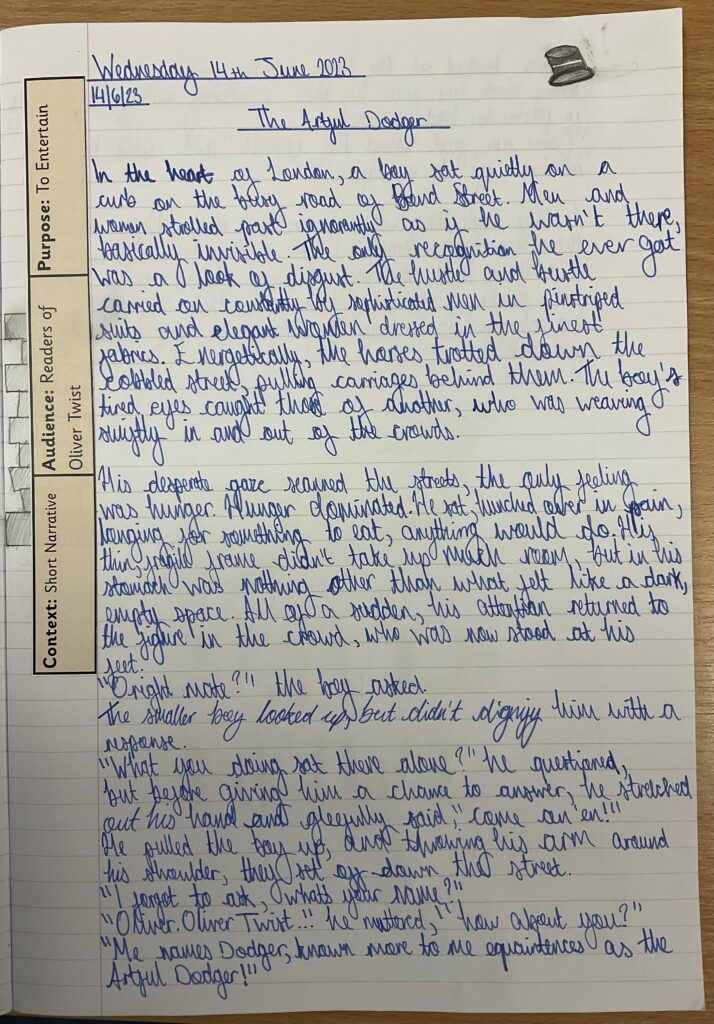 Purpose: To Entertain
Audience: Readers of
Oliver Twist
Context: Short Narrative
Wednesday 14th June 2023
14/6/23
The Artful Dodger
In the heart of London, a boy sat quietly on a
curb on the busy road of Bond Street. Men and
women strolled past ignorantly as if he wasn't there,
basically invisible. The only recognition he ever got
was a look of disgust. The hustle and bustle
carried on constantly by sophisticated men in pinstriped
suits and elegant women dressed in the finest
fabrics. Energetically, the horses trotted down the
cobbled street, pulling carriages behind them. The boy's
tired eyes caught those of another, who was weaving
swiftly in and out of the crowds.
His desperate gaze scanned the streets, the only feeling
was hunger. Hunger dominated. He sat, hunched over in pain,
longing for something to eat, anything would do. His
thin, fragile frame didn't take up much room, but in his
stomach was nothing other than what felt like a dark,
empty space. All of a sudden, his attention returned to
the figure in the crowd, who was now stood at his
feet.
"Oright mate?" the boy asked.
The smaller boy looked up, but didn't dignify him with a
response.
"What you doing sat there alone?" he questioned,
but before giving him a chance to answer, he stretched
out his hand and gleefully said, "come on'en!"
He pulled the boy up, and throwing his arm around
his shoulder, they set off down the street.
"I forgot to ask, whats your name?"
"Oliver. Oliver Twist..." he muttered, "how about you?"
"Me names Dodger, known more to me equaintences as the
Artful Dodger!"